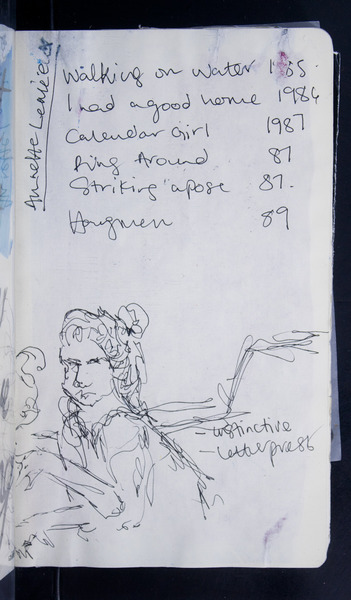 Walking on water 1985.
I had a good home 1986
Calendar Girl 1987
Ring Around 87
Striking a pose 87.
Hangmen 89
Annette
- instinctive
- Letterpress